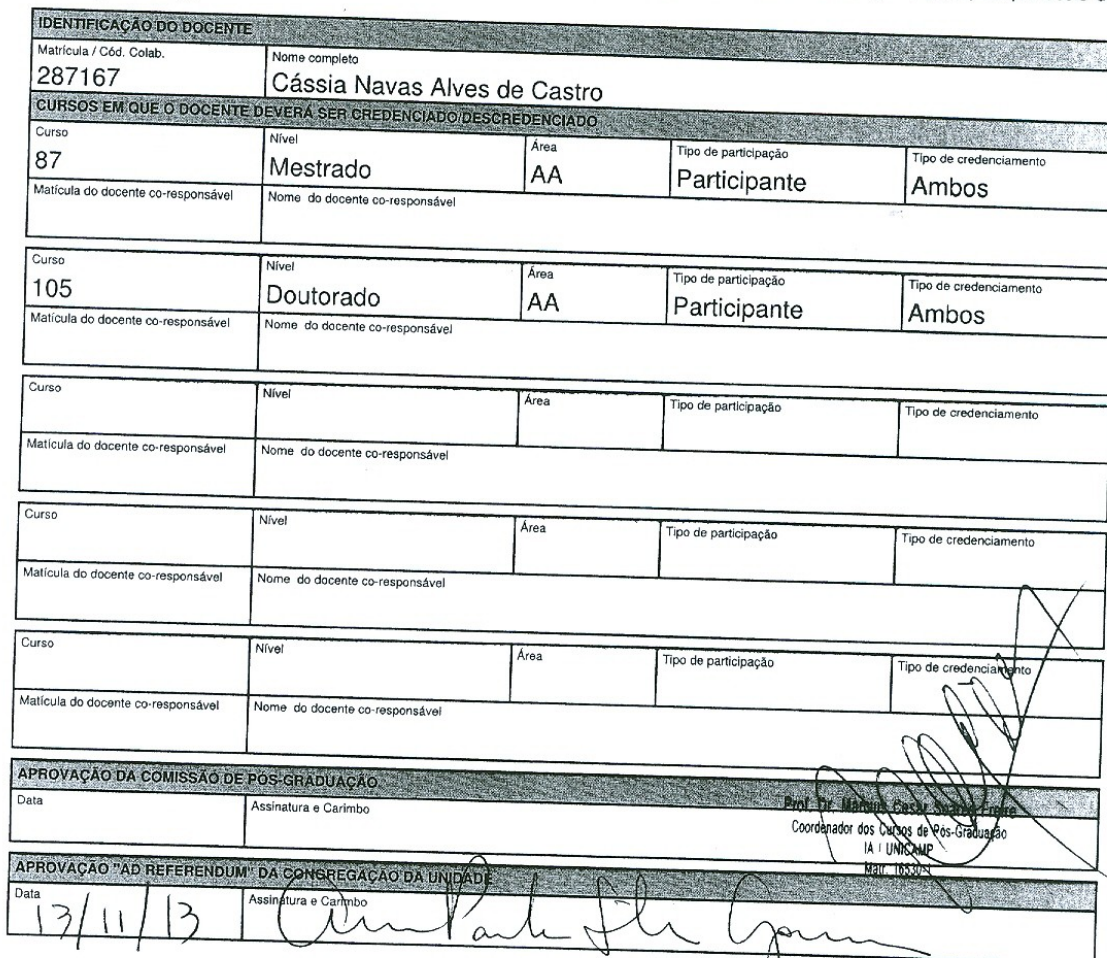 IDENTIFICAÇÃO DO DOCENTE
Matrícula / Cód. Colab. Nome completo
287167 Cássia Navas Alves de Castro
CURSOS EM QUE O DOCENTE DEVERÁ SER CREDENCIADO/DESCREDENCIADO
Curso Nível Área Tipo de participação Tipo de credenciamento
87 Mestrado AA Participante Ambos
Matícula do docente co-responsável Nome do docente co-responsável
Curso Nível Área Tipo de participação Tipo de credenciamento
105 Doutorado AA Participante Ambos
Matícula do docente co-responsável Nome do docente co-responsável
Curso Nível Área Tipo de participação Tipo de credenciamento
Matícula do docente co-responsável Nome do docente co-responsável
Curso Nível Área Tipo de participação Tipo de credenciamento
Matícula do docente co-responsável Nome do docente co-responsável
Curso Nível Área Tipo de participação Tipo de credenciamento
Matícula do docente co-responsável Nome do docente co-responsável
APROVAÇÃO DA COMISSÃO DE PÓS-GRADUAÇÃO
Data Assinatura e Carimbo
Prof. Dr. Cesar Freire
Coordenador dos Cursos de Pós-Graduação
IA / UNICAMP
Matr.
APROVAÇÃO "AD REFERENDUM" DA CONGREGAÇÃO DA UNIDADE
Data Assinatura e Carimbo
13/11/13